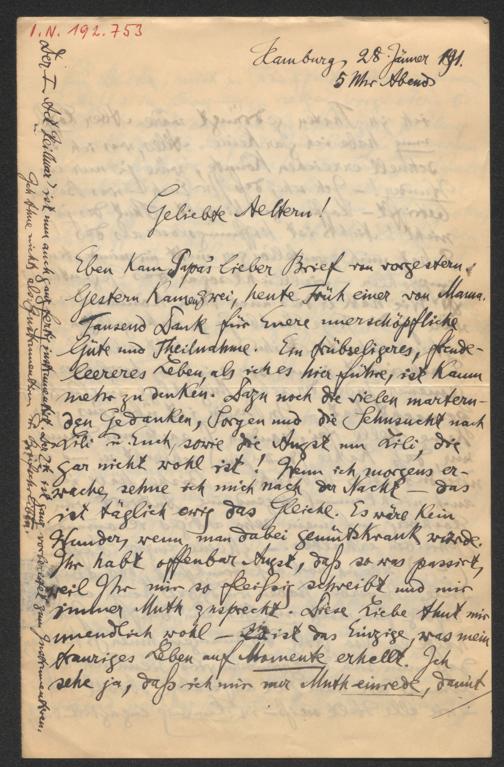 I.N. 192.753
Hamburg, 28 Jänner 191.
5 Uhr Abend
Geliebte Aeltern!
Eben kam Papas lieber Brief von vorgestern.
Gestern kamen zwei, heute Früh einer von Mama.
Tausend Dank für Euere unerschöpfliche
Güte und Theilnahme. Ein trübseligeres, freude-
leereres Leben, als ich es hier führe, ist kaum
mehr zu denken. Dazu noch die vielen martern-
den Gedanken, Sorgen und die Sehnsucht nach
Lili u Euch, sowie die Angst um Lili, die
gar nicht wohl ist! Wenn ich morgens er-
wache, sehne ich mich nach der Nacht – das
ist täglich ewig das Gleiche. Es wäre kein
Wunder, wenn man dabei gemütskrank würde.
Ihr habt offenbar Angst, daß so was passirt,
weil Ihr mir so fleißig schreibt und mir
immer Muth zusprecht. Diese Liebe thut mir
unendlich wohl – sie ist das Einzige, was mein
trauriges Leben auf Momente erhellt. Ich
sehe ja, daß ich mir nur Muth einrede, damit
Der I. Akt ist nun auch ganz fertig instrumentirt. Der ist ganz vorbereitet zum Instrumentiren.
Ich thue nichts als Instrumentiren u